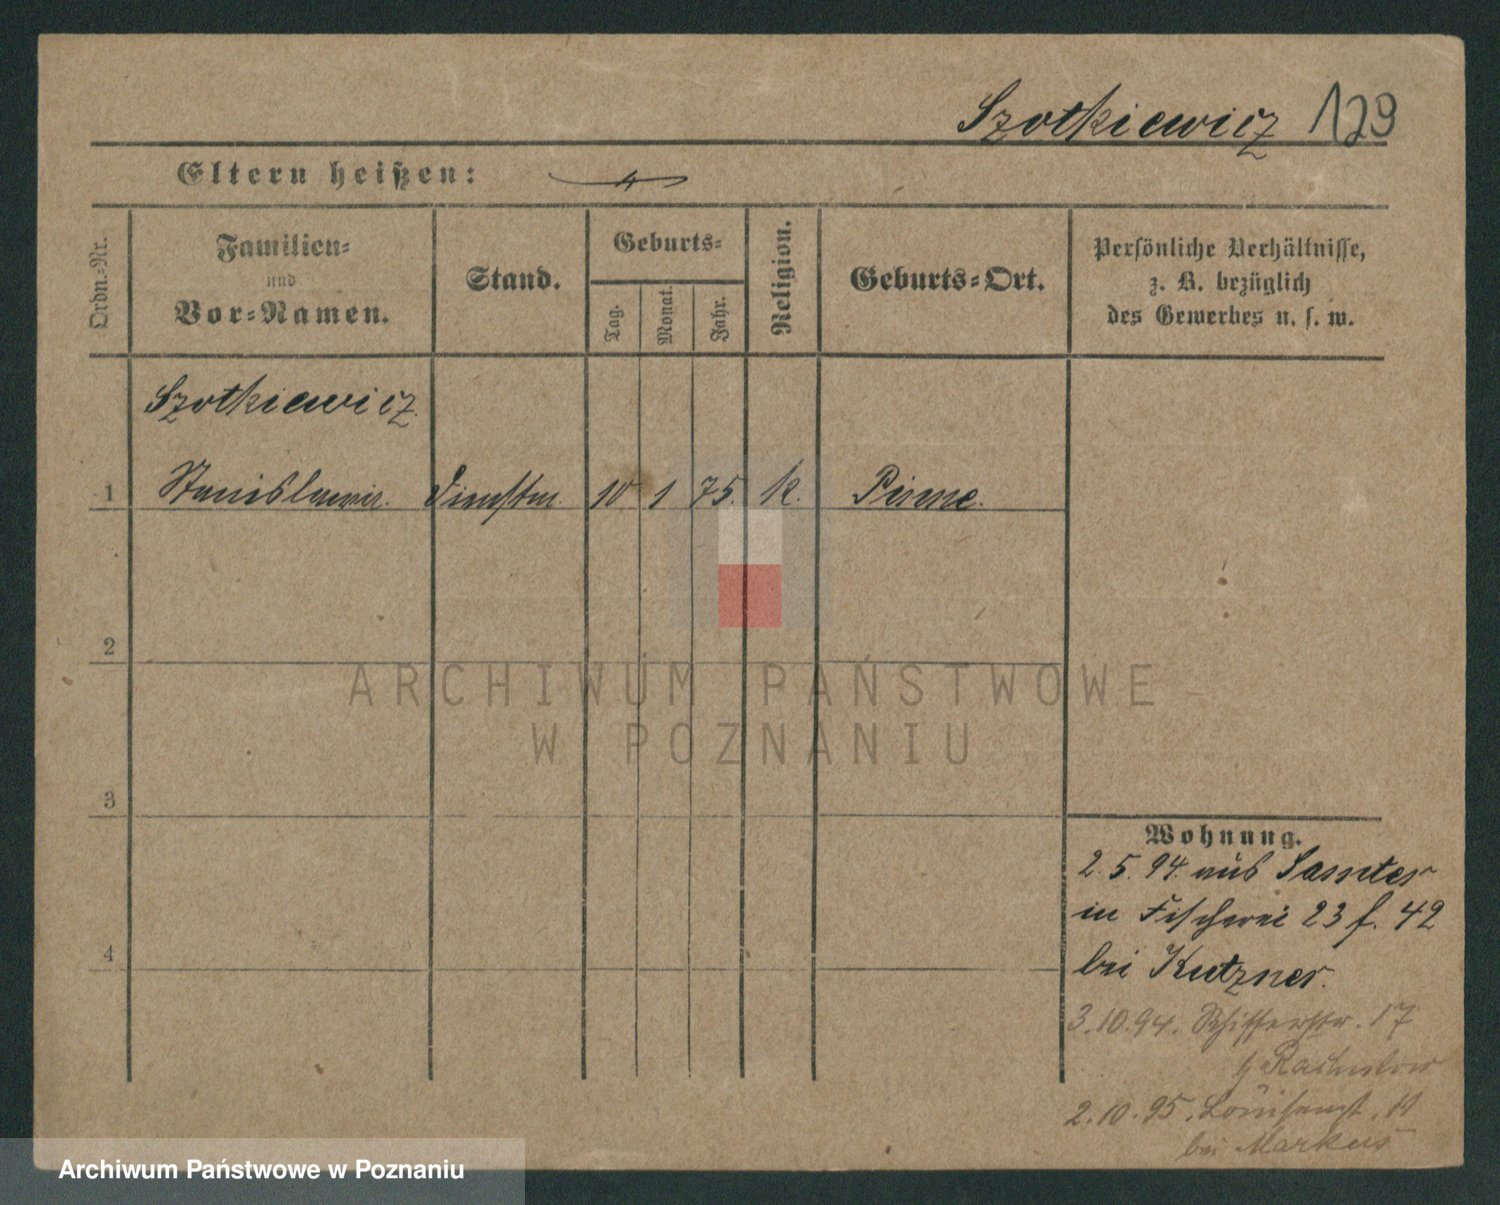 Szotkiewicz 129
Eltern heißen:
Ordn.-Nr.
Familien-
und
Vor-Namen.
Stand.
Geburts-
Tag.
Monat.
Jahr.
Religion.
Geburts-Ort.
Persönliche Verhältnisse,
z. B. bezüglich
des Gewerbes u. s. w.
Szotkiewicz
1 Stanislawa. 10 1 75. k. Pinne.
2
3
4
Wohnung.
2.5.94. aus Samter
in Fischerei 23 f. 42
bei Kutzner.
3.10.94. Schifferstr. 17
2.10.95. Louisenst. 11
bei Markus
ARCHIWUM PAŃSTWOWE
W POZNANIU
Archiwum Państwowe w Poznaniu